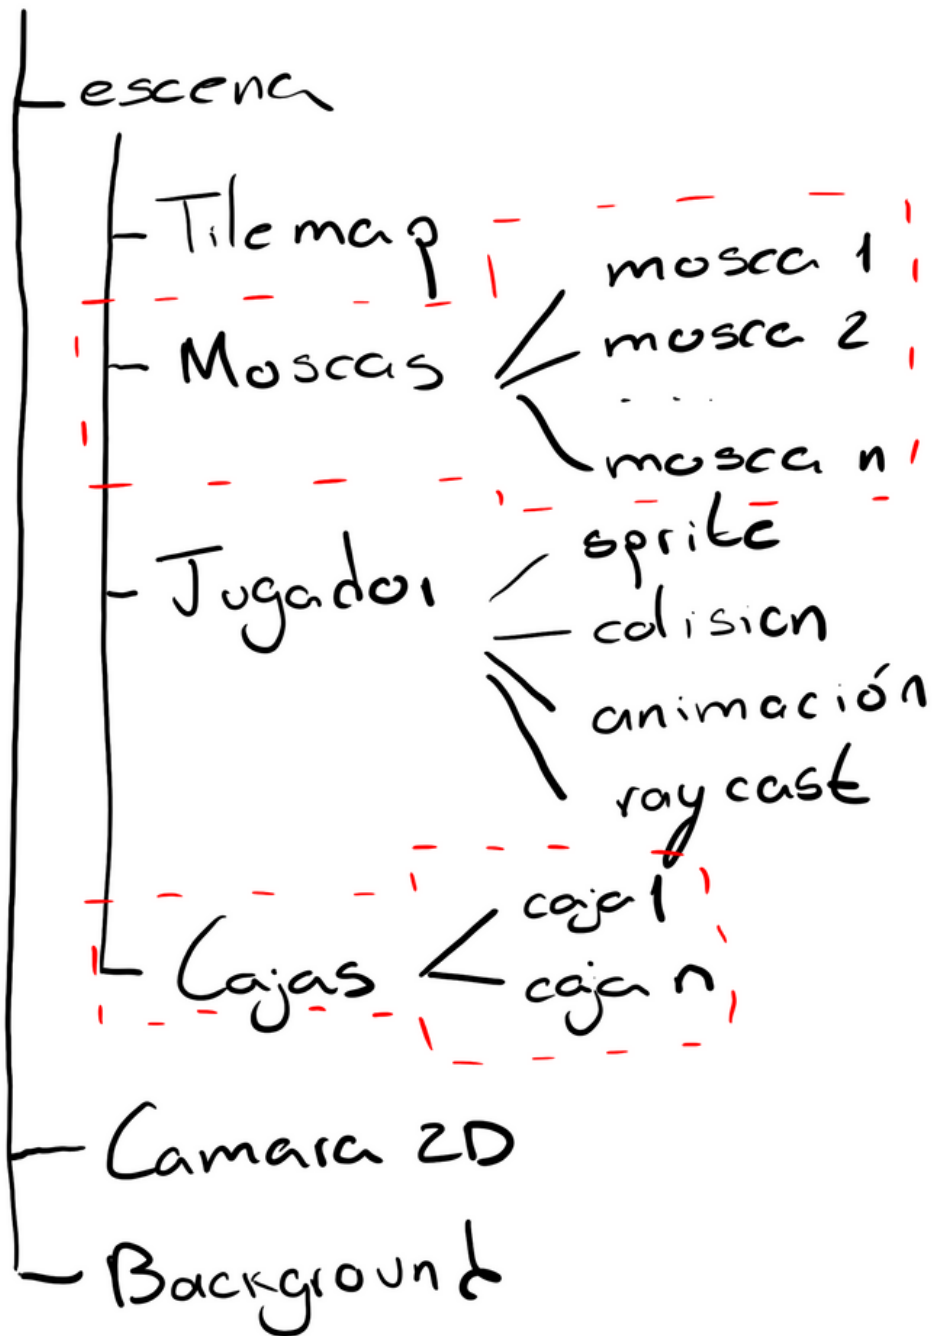 escena
Tilemap
mosca 1
mosca 2
Moscas
. . . .
mosca n
sprite
Jugador
colision
animación
raycast
caja 1
Cajas
caja n
Camara 2D
Background